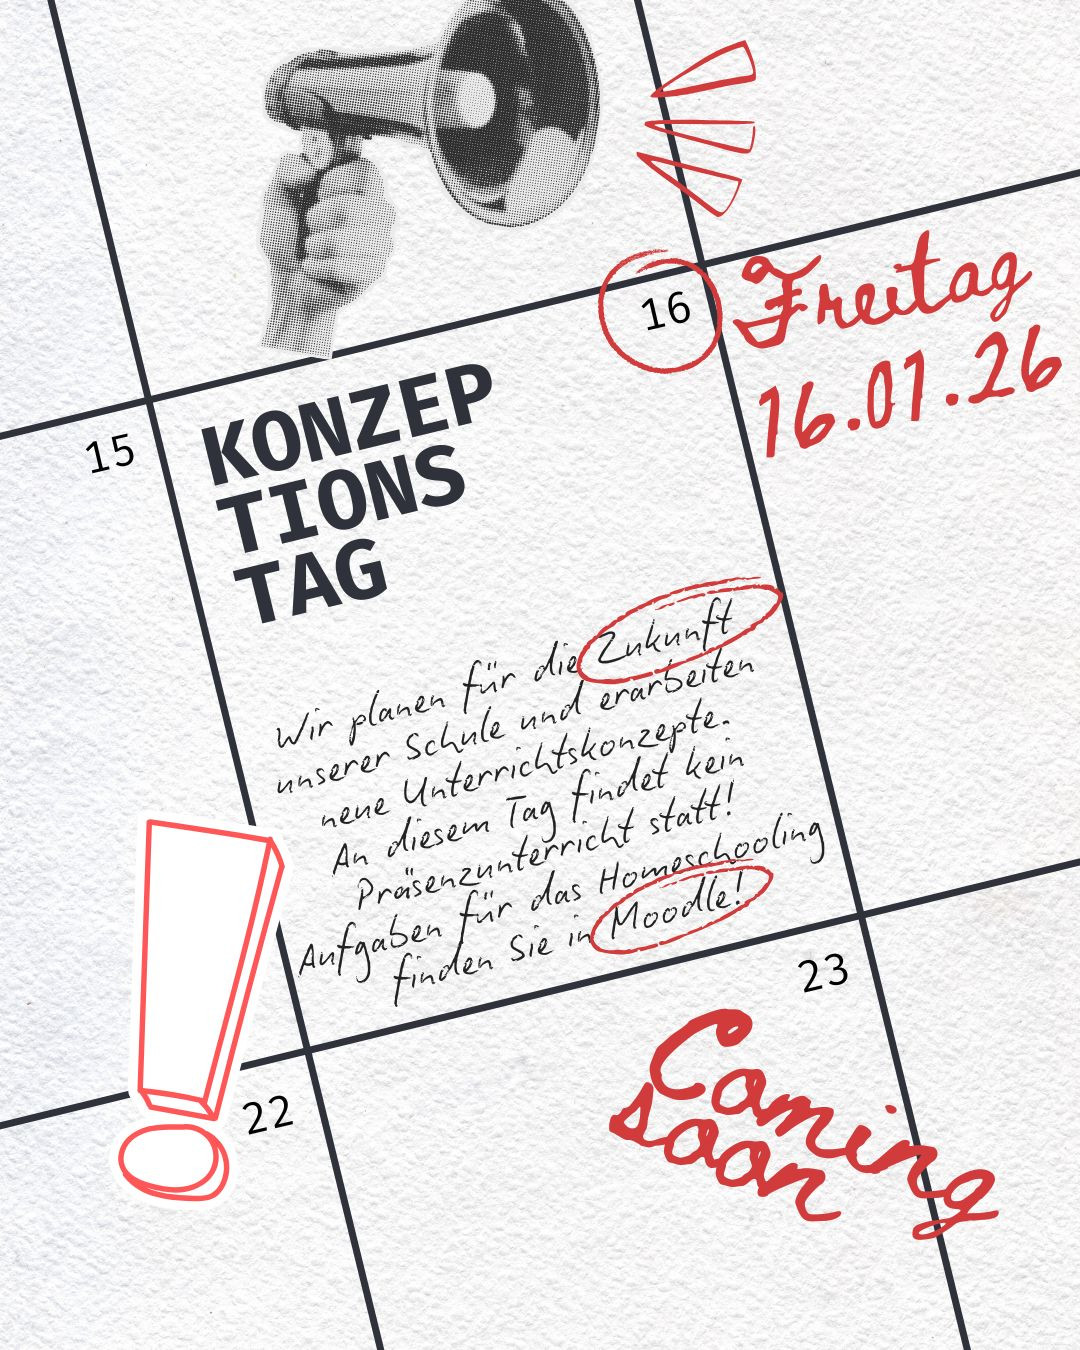 16
Freitag
16.01.26
15
KONZEP
TIONS
TAG
Wir planen für die Zukunft
unserer Schule und erarbeiten
neue Unterrichtskonzepte.
An diesem Tag findet kein
Präsenzunterricht statt!
Aufgaben für das Homeschooling
finden Sie in Moodle!
23
22
Coming
soon